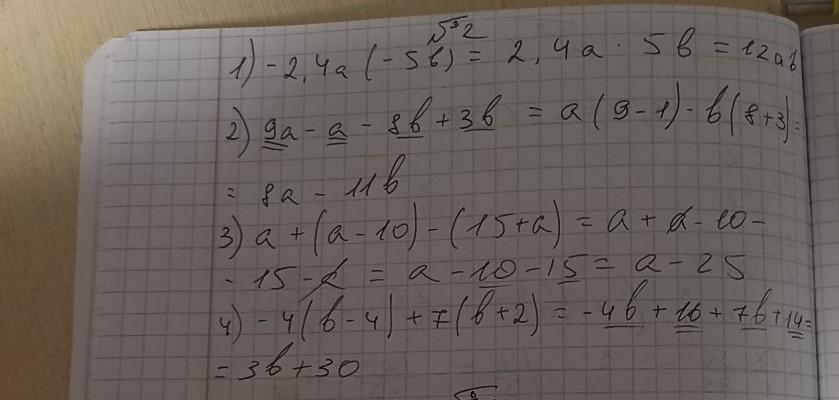 №2
1) -2,4a (-5b) = 2,4a · 5b = 12ab
2) 9a - a - 8b + 3b = a(9-1) - b(8+3) =
= 8a - 11b
3) a + (a-10) - (15+a) = a + a - 10 -
- 15 - a = a - 10 - 15 = a - 25
4) -4(b-4) + 7(b+2) = -4b + 16 + 7b + 14 =
= 3b + 30